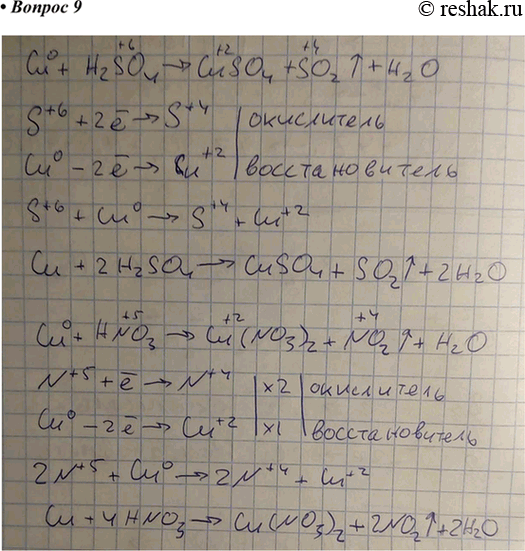 • Вопрос 9
© reshak.ru
Cu⁰ + H₂S⁺⁶O₄ → Cu⁺²SO₄ + S⁺⁴O₂↑ + H₂O
S⁺⁶ + 2ē → S⁺⁴ | окислитель
Cu⁰ − 2ē → Cu⁺² | восстановитель
S⁺⁶ + Cu⁰ → S⁺⁴ + Cu⁺²
Cu + 2H₂SO₄ → CuSO₄ + SO₂↑ + 2H₂O
Cu⁰ + HN⁺⁵O₃ → Cu⁺²(NO₃)₂ + N⁺⁴O₂↑ + H₂O
N⁺⁵ + ē → N⁺⁴ | ×2 | окислитель
Cu⁰ − 2ē → Cu⁺² | ×1 | восстановитель
2N⁺⁵ + Cu⁰ → 2N⁺⁴ + Cu⁺²
Cu + 4HNO₃ → Cu(NO₃)₂ + 2NO₂↑ + 2H₂O